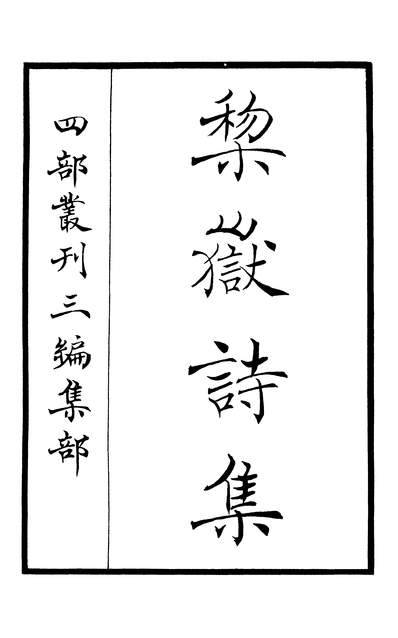 棃嶽詩集
四部叢刊三編集部